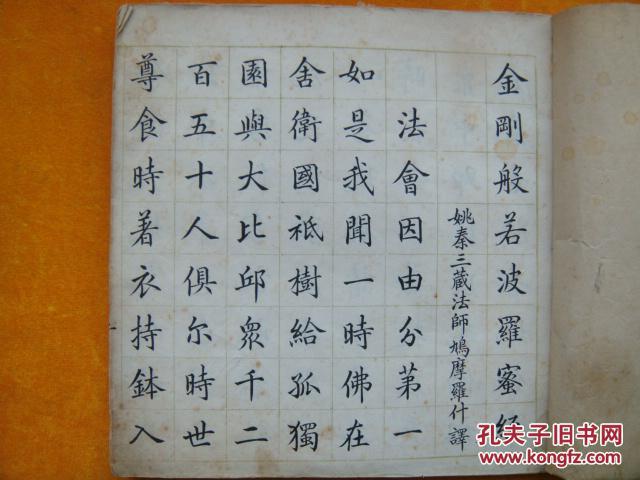 金剛般若波羅蜜經
姚秦三藏法師鳩摩羅什譯
法會因由分第一
如是我聞一時佛在
舍衛國祇樹給孤獨
園與大比邱眾千二
百五十人俱尔時世
尊食時著衣持鉢入
孔夫子旧书网
www.kongfz.com